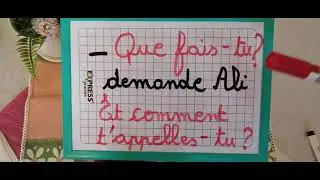 _ Que fais-tu?
demande Ali
Et comment
t'appelles-tu ?
EXPRESS